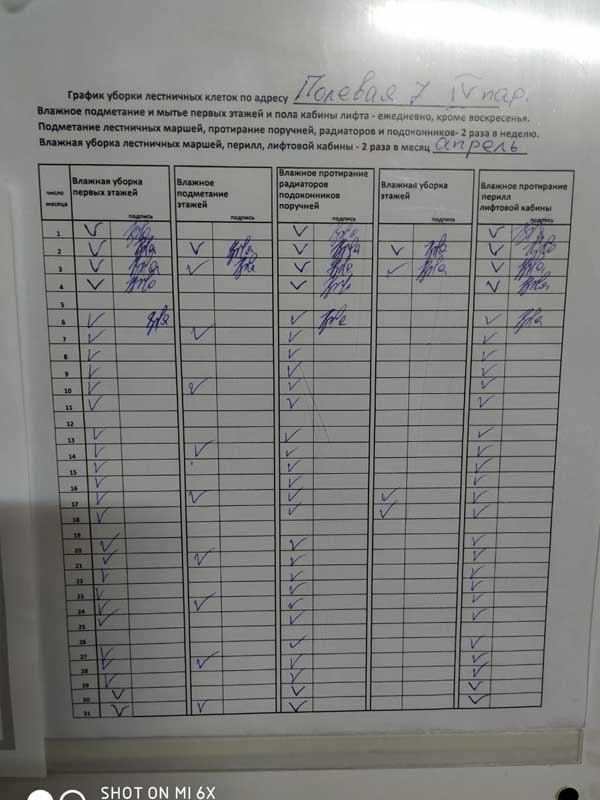 График уборки лестничных клеток по адресу Полевая 7 IV пар.
Влажное подметание и мытье первых этажей и пола кабины лифта - ежедневно, кроме воскресенья.
Подметание лестничных маршей, протирание поручней, радиаторов и подоконников- 2 раза в неделю.
Влажная уборка лестничных маршей, перилл, лифтовой кабины - 2 раза в месяц апрель
число месяца
Влажная уборка первых этажей
подпись
Влажное подметание этажей
подпись
Влажное протирание радиаторов подоконников поручней
подпись
Влажная уборка этажей
подпись
Влажное протирание перилл лифтовой кабины
подпись
1
2
3
4
5
6
7
8
9
10
11
12
13
14
15
16
17
18
19
20
21
22
23
24
25
26
27
28
29
30
31
SHOT ON MI 6X